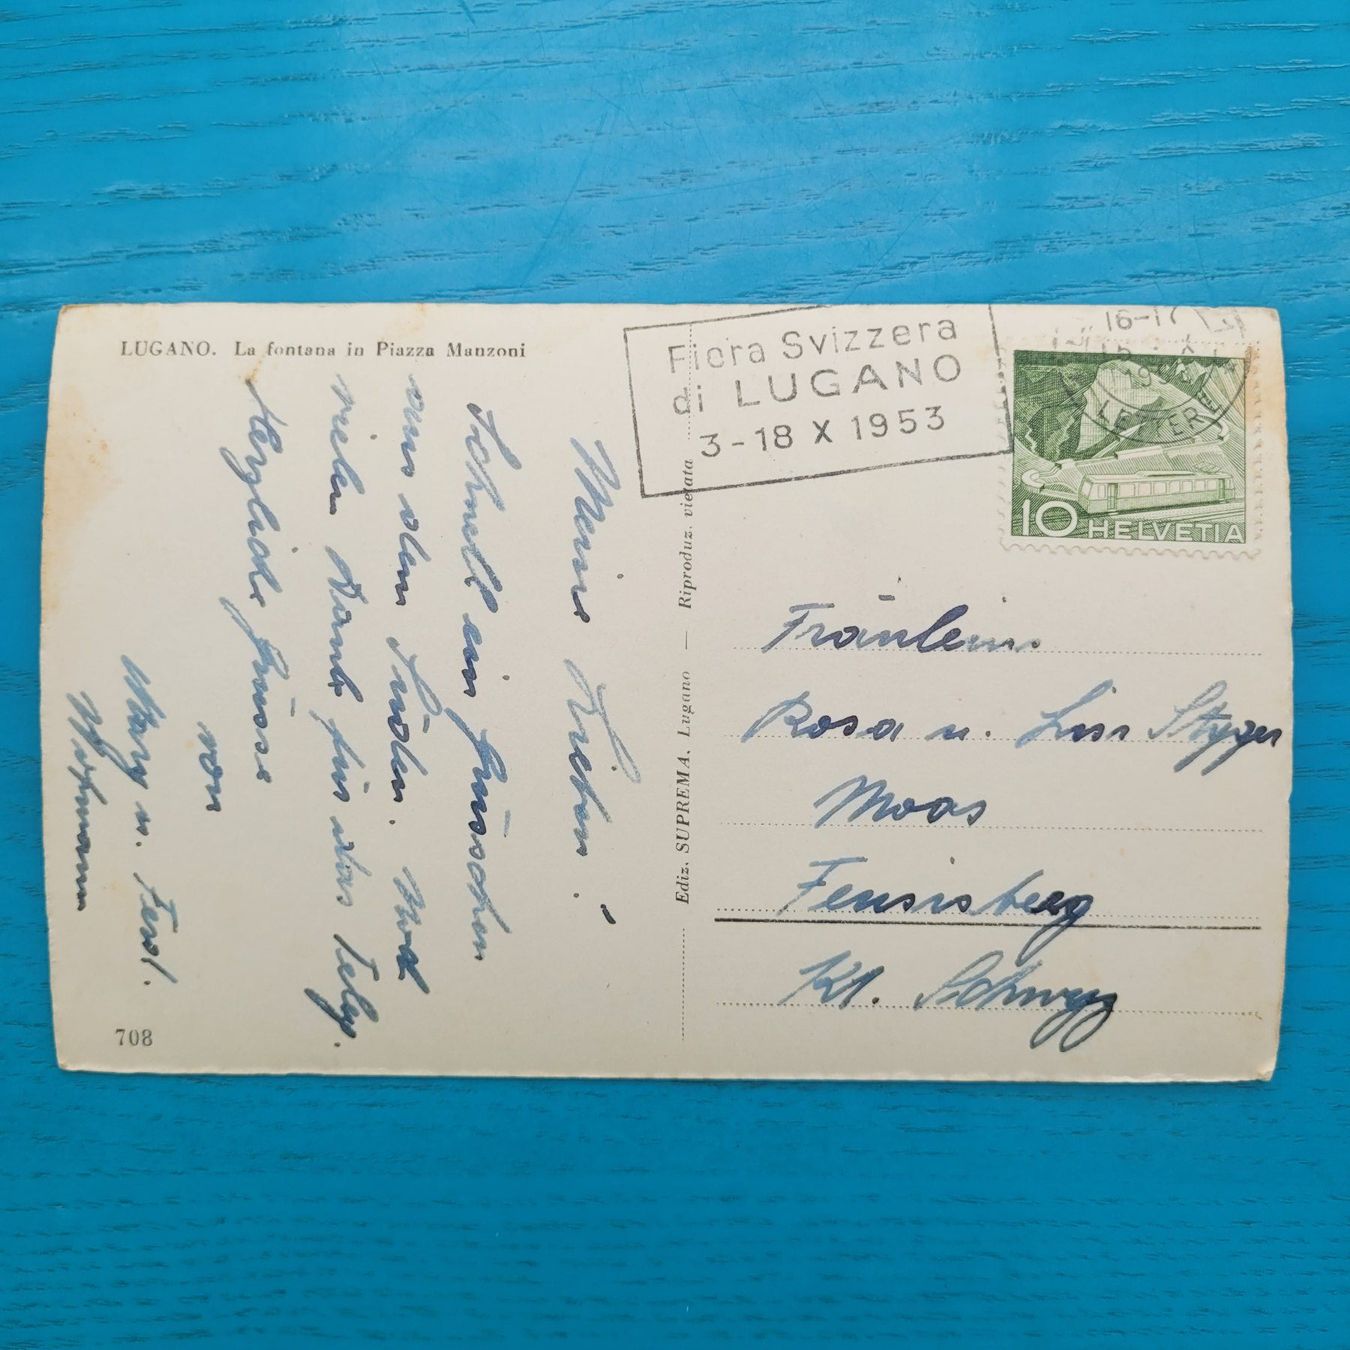 LUGANO. La fontana in Piazza Manzoni
Meine Lieben!
Schnell ein Grüsschen
aus dem Süden. Und
vielen Dank für das Telegr.
Herzliche Grüsse
von
Mary u. Ferd.
Hofmann
708
Ediz. SUPREMA, Lugano — Riproduz. vietata
Fiera Svizzera
di LUGANO
3-18 X 1953
16-17
X
LETTER
10 HELVETIA
Fräulein
Rosa u. Lisi Styger
Moos
Feusisberg
Kt. Schwyz